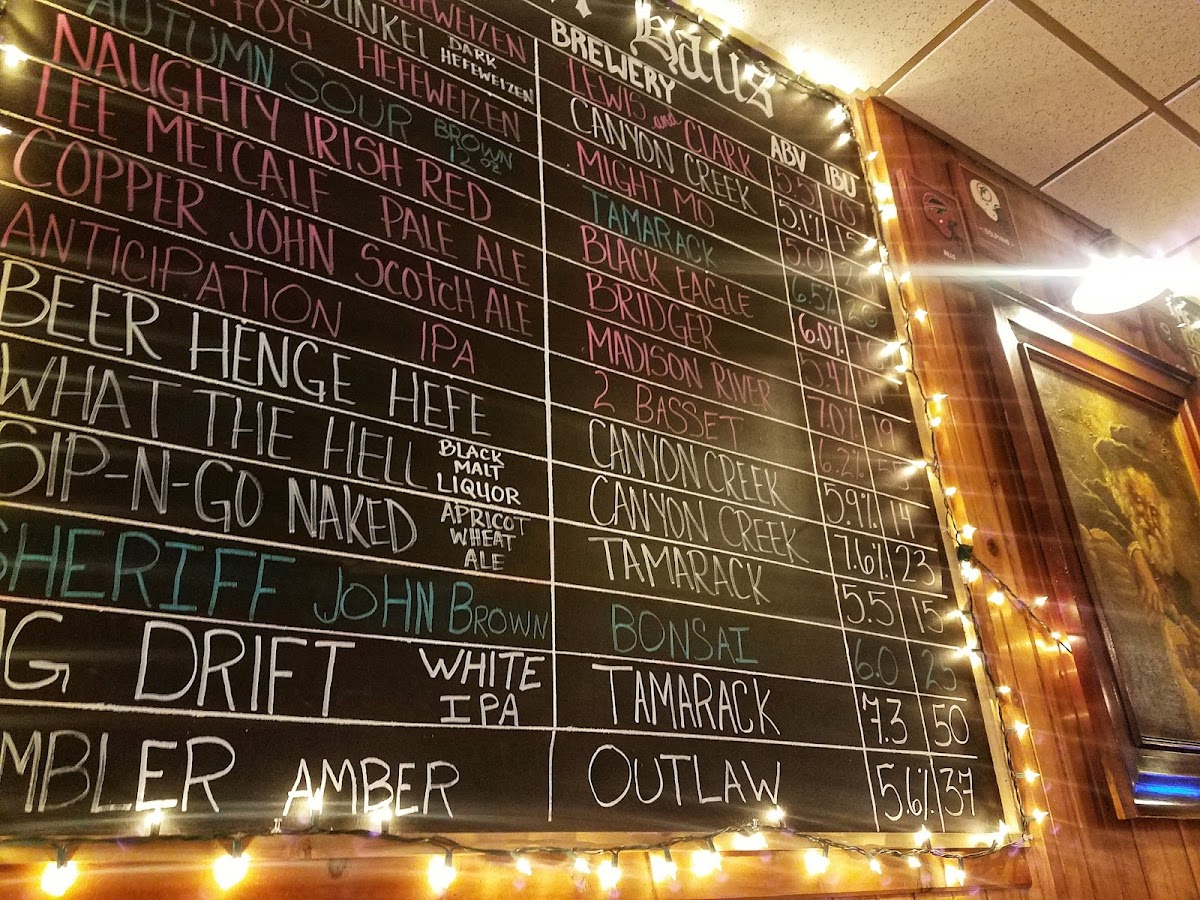 Baus
BREWERY ABV IBU
HEFEWEIZEN LEWIS and CLARK 5.5% 10
DUNKEL DARK HEFEWEIZEN CANYON CREEK 5.1% 15
FOG HEFEWEIZEN MIGHT MO 5.0%
AUTUMN SOUR BROWN 12 oz TAMARACK 6.5%
NAUGHTY IRISH RED BLACK EAGLE 6.0%
LEE METCALF PALE ALE BRIDGER 5.4%
COPPER JOHN SCOTCH ALE MADISON RIVER 7.0% 19
ANTICIPATION IPA 2 BASSET 6.2%
BEER HENGE HEFE CANYON CREEK 5.9% 14
WHAT THE HELL BLACK MALT LIQUOR CANYON CREEK 7.6% 23
SIP-N-GO NAKED APRICOT WHEAT ALE TAMARACK 5.5 15
SHERIFF JOHN BROWN BONSAI 6.0 25
DRIFT WHITE IPA TAMARACK 7.3 50
MBLER AMBER OUTLAW 5.6% 37